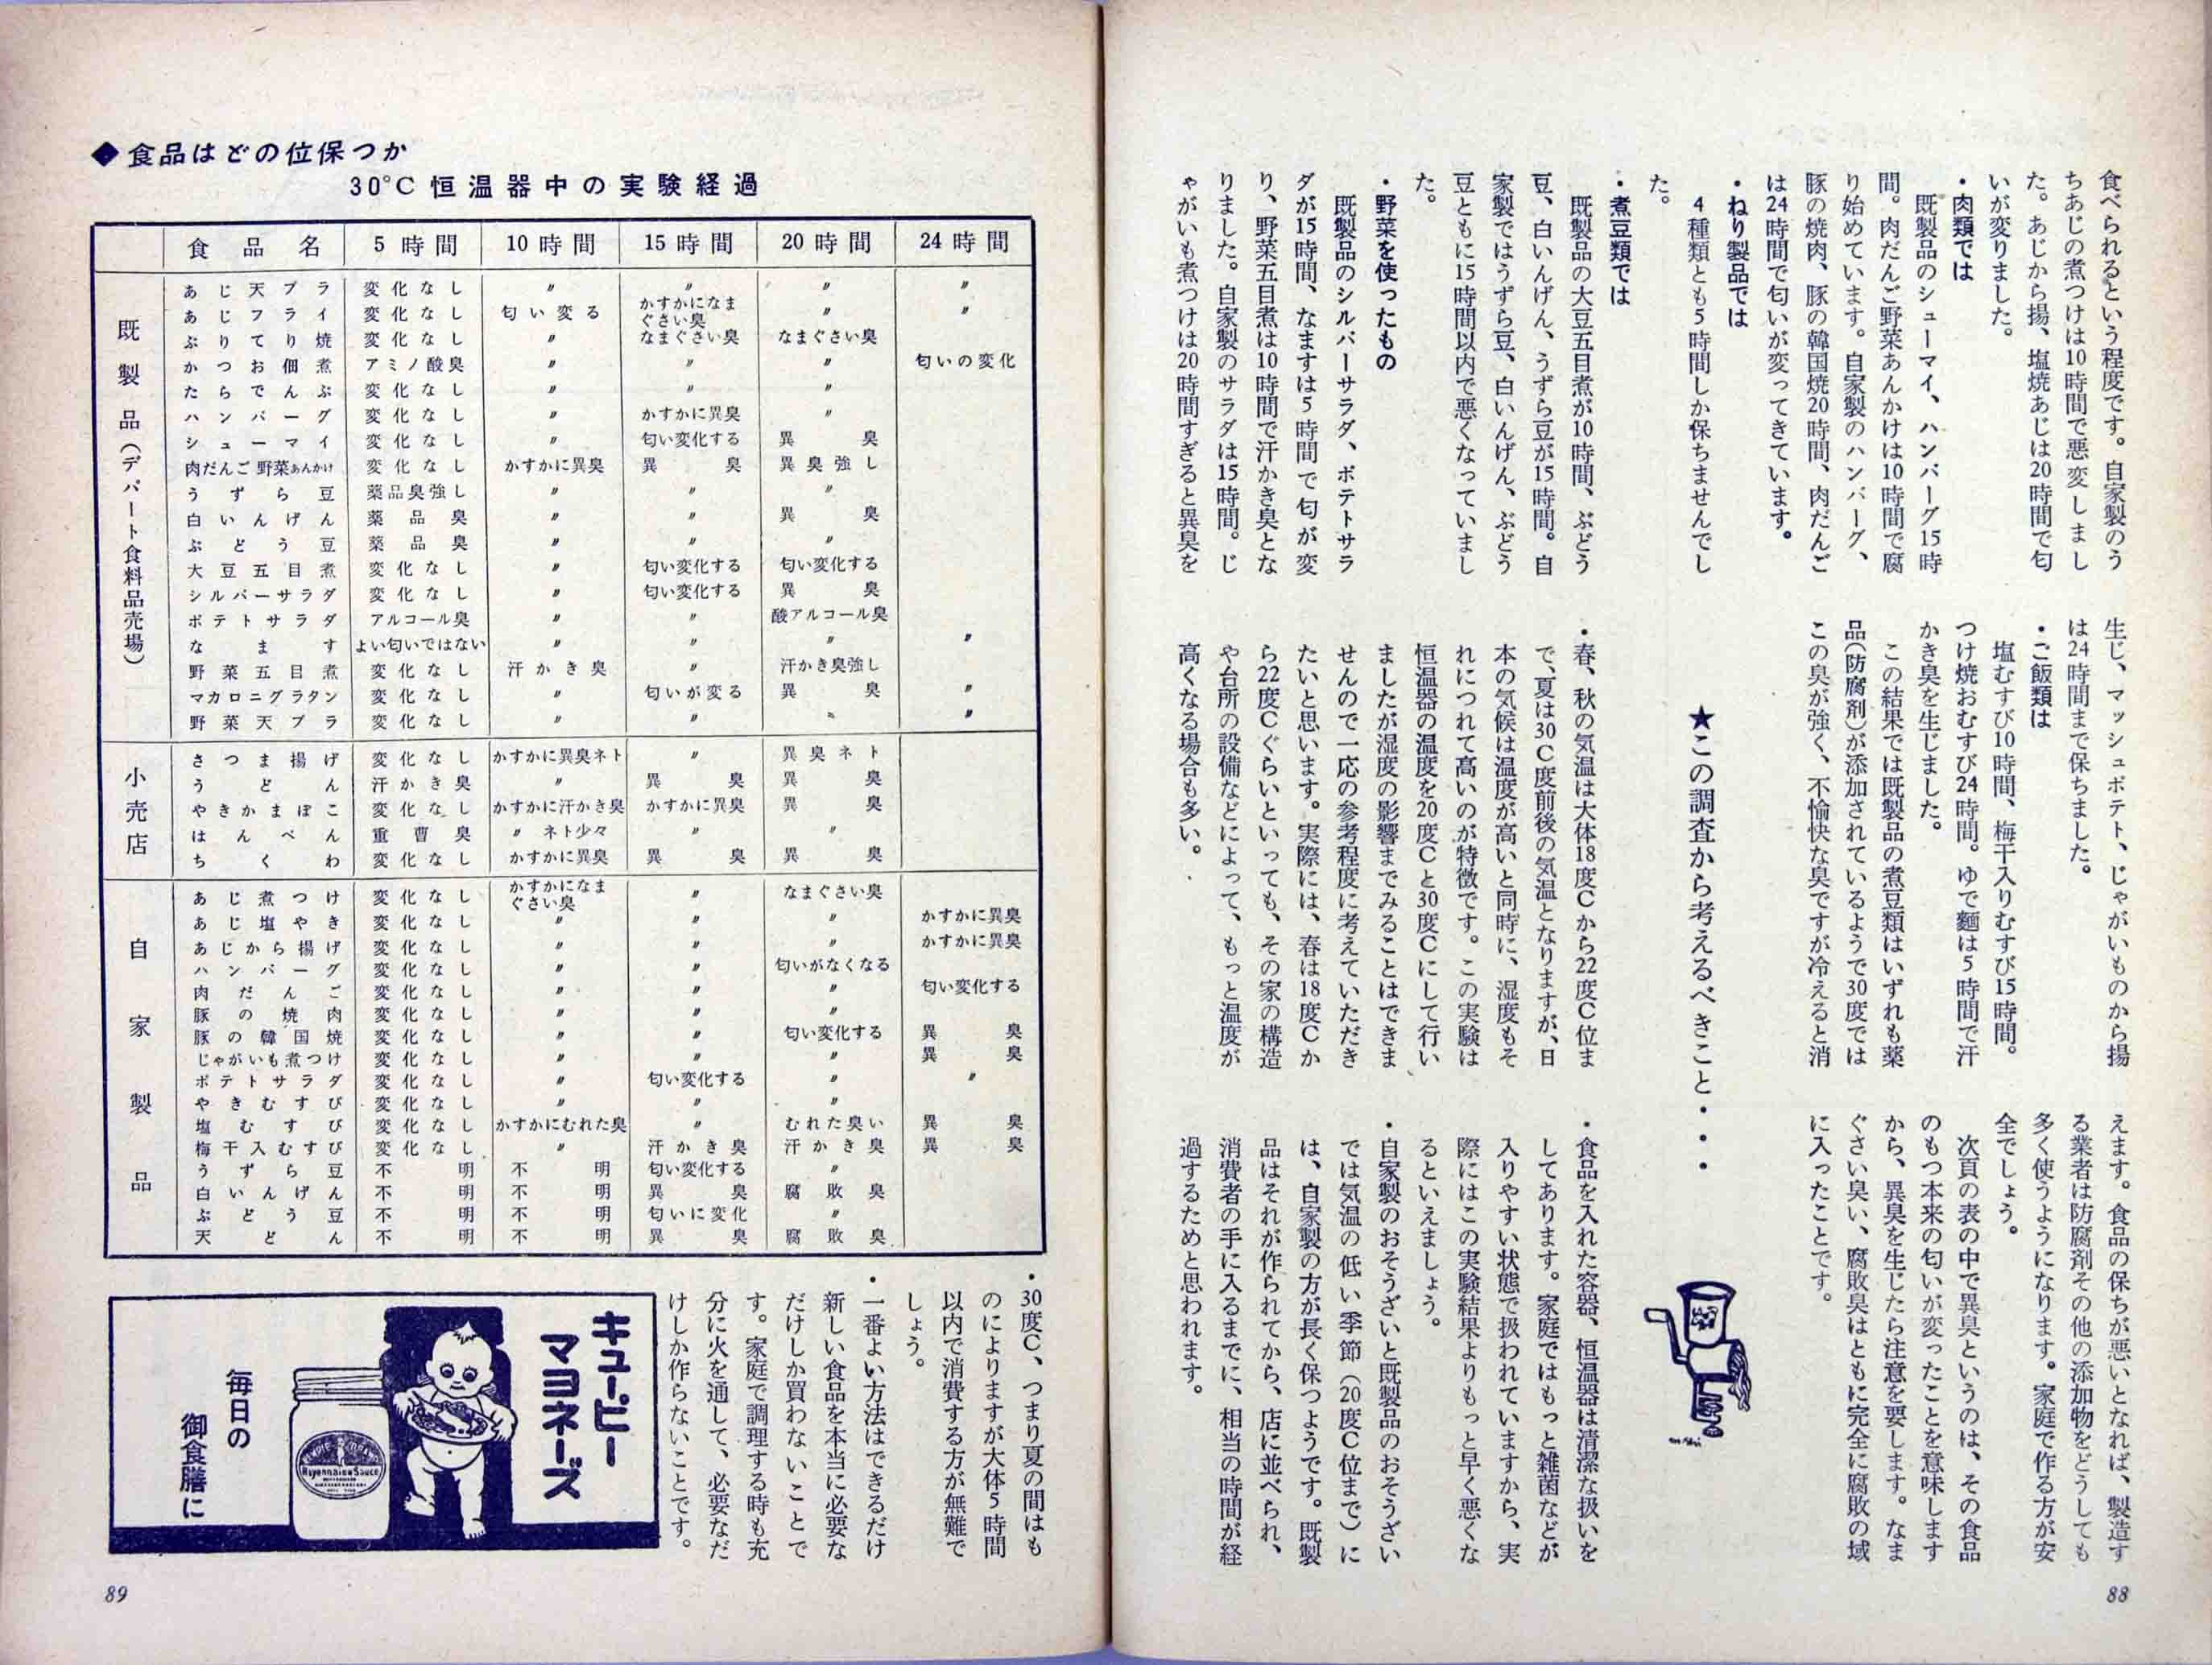 食べられるという程度です。自家製のう
ちあじの煮つけは10時間で悪変しまし
た。あじから揚、塩焼あじは20時間で匂
いが変りました。
・肉類では
既製品のシューマイ、ハンバーグ15時
間。肉だんご野菜あんかけは10時間で腐
り始めています。自家製のハンバーグ、
豚の焼肉、豚の韓国焼20時間、肉だんご
は24時間で匂いが変ってきています。
・ねり製品では
4種類とも5時間しか保ちませんでし
た。
・煮豆類では
既製品の大豆五目煮が10時間、ぶどう
豆、白いんげん、うずら豆が15時間。自
家製ではうずら豆、白いんげん、ぶどう
豆ともに15時間以内で悪くなっていまし
た。
・野菜を使ったもの
既製品のシルバーサラダ、ポテトサラ
ダが15時間、なますは5時間で匂が変
り、野菜五目煮は10時間で汗かき臭とな
りました。自家製のサラダは15時間。じ
ゃがいも煮つけは20時間すぎると異臭を
生じ、マッシュポテト、じゃがいものから揚
は24時間まで保ちました。
・ご飯類は
塩むすび10時間、梅干入りむすび15時間。
つけ焼おむすび24時間。ゆで麵は5時間で汗
かき臭を生じました。
この結果では既製品の煮豆類はいずれも薬
品(防腐剤)が添加されているようで30度では
この臭が強く、不愉快な臭ですが冷えると消
えます。食品の保ちが悪いとなれば、製造す
る業者は防腐剤その他の添加物をどうしても
多く使うようになります。家庭で作る方が安
全でしょう。
次頁の表の中で異臭というのは、その食品
のもつ本来の匂いが変ったことを意味します
から、異臭を生じたら注意を要します。なま
ぐさい臭い、腐敗臭はともに完全に腐敗の域
に入ったことです。
★この調査から考えるべきこと・・・
・春、秋の気温は大体18度Cから22度C位ま
で、夏は30C度前後の気温となりますが、日
本の気候は温度が高いと同時に、湿度もそ
れにつれて高いのが特徴です。この実験は
恒温器の温度を20度Cと30度Cにして行い
ましたが湿度の影響までみることはできま
せんので一応の参考程度に考えていただき
たいと思います。実際には、春は18度Cか
ら22度Cぐらいといっても、その家の構造
や台所の設備などによって、もっと温度が
高くなる場合も多い。
・食品を入れた容器、恒温器は清潔な扱いを
してあります。家庭ではもっと雑菌などが
入りやすい状態で扱われていますから、実
際にはこの実験結果よりもっと早く悪くな
るといえましょう。
・自家製のおそうざいと既製品のおそうざい
では気温の低い季節(20度C位まで)に
は、自家製の方が長く保つようです。既製
品はそれが作られてから、店に並べられ、
消費者の手に入るまでに、相当の時間が経
過するためと思われます。
88
◆食品はどの位保つか
30°C恒温器中の実験経過
食品名 5時間 10時間 15時間 20時間 24時間
既製品(デパート食料品売場)
あじ天プラ 変化なし 〃 〃 〃 〃
あじフライ 変化なし 匂い変る かすかになまぐさい臭 〃 〃
ぶりてり焼 変化なし 〃 なまぐさい臭 なまぐさい臭
かつお佃煮 アミノ酸臭 〃 〃 〃 匂いの変化
たらでんぶ 変化なし 〃 〃 〃
ハンバーグ 変化なし 〃 かすかに異臭 〃
シューマイ 変化なし 〃 匂い変化する 異臭
肉だんご野菜あんかけ 変化なし かすかに異臭 異臭 異臭強し
うずら豆 薬品臭強し 〃 〃 〃
白いんげん 薬品臭 〃 〃 異臭
ぶどう豆 薬品臭 〃 〃 〃
大豆五目煮 変化なし 〃 匂い変化する 匂い変化する
シルバーサラダ 変化なし 〃 匂い変化する 異臭
ポテトサラダ アルコール臭 〃 〃 酸アルコール臭
なます よい匂いではない 〃 〃 〃 〃
野菜五目煮 変化なし 汗かき臭 〃 汗かき臭強し
マカロニグラタン 変化なし 〃 匂いが変る 異臭 〃
野菜天プラ 変化なし 〃 〃 〃 〃
小売店
さつま揚げ 変化なし かすかに異臭ネト 〃 異臭ネト
うどん 汗かき臭 〃 異臭 異臭
やきかまぼこ 変化なし かすかに汗かき臭 かすかに異臭 異臭
はんぺん 重曹臭 〃ネト少々 〃 〃
ちくわ 変化なし かすかに異臭 異臭 異臭
自家製品
あじ煮つけ 変化なし かすかになまぐさい臭 〃 なまぐさい臭
あじ塩やき 変化なし 〃 〃 〃 かすかに異臭
あじから揚げ 変化なし 〃 〃 〃 かすかに異臭
ハンバーグ 変化なし 〃 〃 匂いがなくなる
肉だんご 変化なし 〃 〃 〃 匂い変化する
豚の焼肉 変化なし 〃 〃 〃
豚の韓国焼 変化なし 〃 〃 匂い変化する 異臭
じゃがいも煮つけ 変化なし 〃 〃 〃 異臭
ポテトサラダ 変化なし 〃 匂い変化する 〃 〃
やきむすび 変化なし 〃 〃 〃
塩むすび 変化なし かすかにむれた臭 〃 むれた臭い 異臭
梅干入むすび 変化なし 〃 汗かき臭 汗かき臭 異臭
うずら豆 不明 不明 匂い変化する 〃
白いんげん 不明 不明 異臭 腐敗臭
ぶどう豆 不明 不明 匂いに変化 〃
天どん 不明 不明 異臭 腐敗臭
・30度C、つまり夏の間はも
のによりますが大体5時間
以内で消費する方が無難で
しょう。
・一番よい方法はできるだけ
新しい食品を本当に必要な
だけしか買わないことで
す。家庭で調理する時も充
分に火を通して、必要なだ
けしか作らないことです。
キューピー
マヨネーズ
Mayonnaise Sauce
毎日の
御食膳に
89